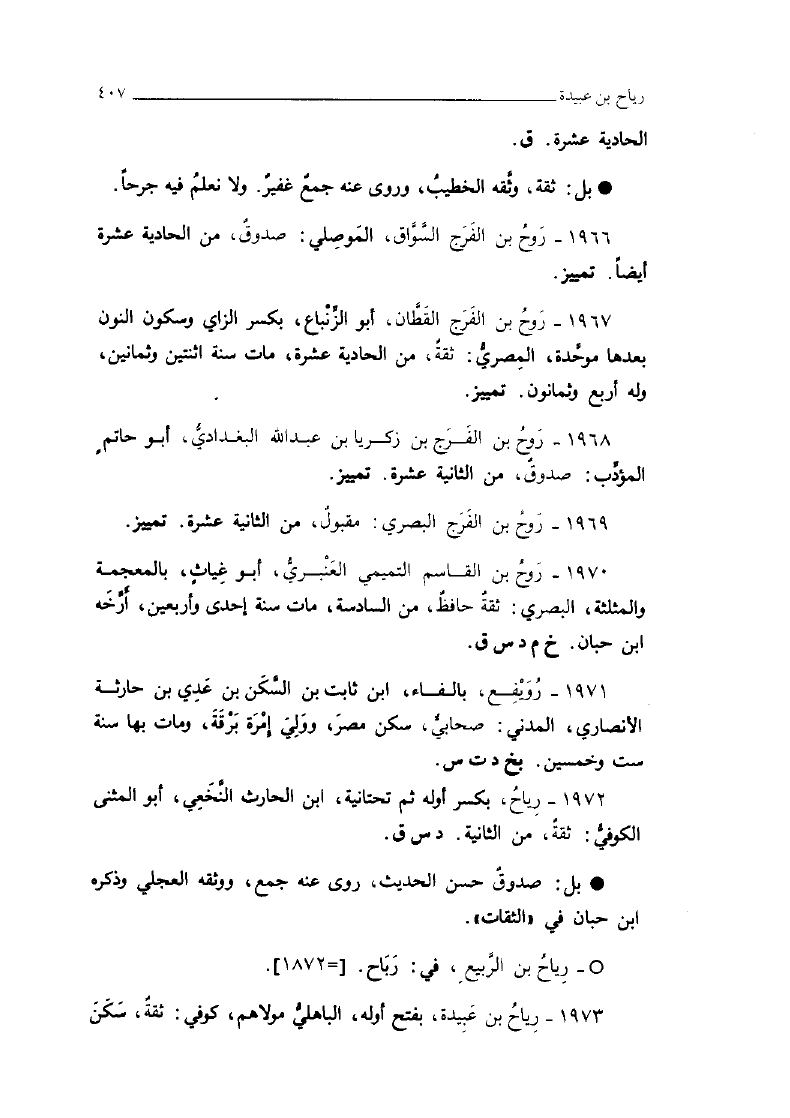 رياح بن عبيدة ـــــــــــــــــــــ ٤٠٧
الحادية عشرة. ق.
● بل: ثقة، وثَّقه الخطيبُ، وروى عنه جمعٌ غفيرٌ. ولا نعلمُ فيه جرحاً.
١٩٦٦ ـ رَوحُ بن الفَرَج السَّوَّاق، المَوصِلي: صدوقٌ، من الحادية عشرة
أيضاً. تمييز.
١٩٦٧ ـ رَوحُ بن الفَرَج القَطَّان، أبو الزِّنْباع، بكسر الزاي وسكون النون
بعدها موحَّدة، المِصريُّ: ثقةٌ، من الحادية عشرة، مات سنة اثنتين وثمانين،
وله أربع وثمانون. تمييز.
١٩٦٨ ـ رَوحُ بن الفَرَج بن زكريا بن عبدالله البغداديُّ، أبو حاتمٍ
المؤدِّب: صدوقٌ، من الثانية عشرة. تمييز.
١٩٦٩ ـ رَوحُ بن الفَرَج البصري: مقبولٌ، من الثانية عشرة. تمييز.
١٩٧٠ ـ رَوحُ بن القاسم التميمي العَنْبريُّ، أبو غِياثٍ، بالمعجمة
والمثلثة، البصري: ثقةٌ حافظٌ، من السادسة، مات سنة إحدى وأربعين، أرَّخَه
ابن حبان. خ م د س ق.
١٩٧١ ـ رُوَيْفِع، بالفاء، ابن ثابت بن السَّكَن بن عَدِي بن حارثة
الأنصاري، المدني: صحابيٌّ، سكن مصرَ، ووَلِيَ إمْرَة بَرْقَةَ، ومات بها سنة
ست وخمسين. بخ د ت س.
١٩٧٢ ـ رِياحُ، بكسر أوله ثم تحتانية، ابن الحارث النَّخَعِي، أبو المثنى
الكوفيُّ: ثقةٌ، من الثانية. د س ق.
● بل: صدوقٌ حسن الحديث، روى عنه جمع، ووثقه العجلي وذكره
ابن حبان في «الثقات».
○ ـ رِياحُ بن الرَّبيع، في: رَبَاح. [=١٨٧٢].
١٩٧٣ ـ رِياحُ بن عَبِيدة، بفتح أوله، الباهليُّ مولاهم، كوفي: ثقةٌ، سَكَنَ